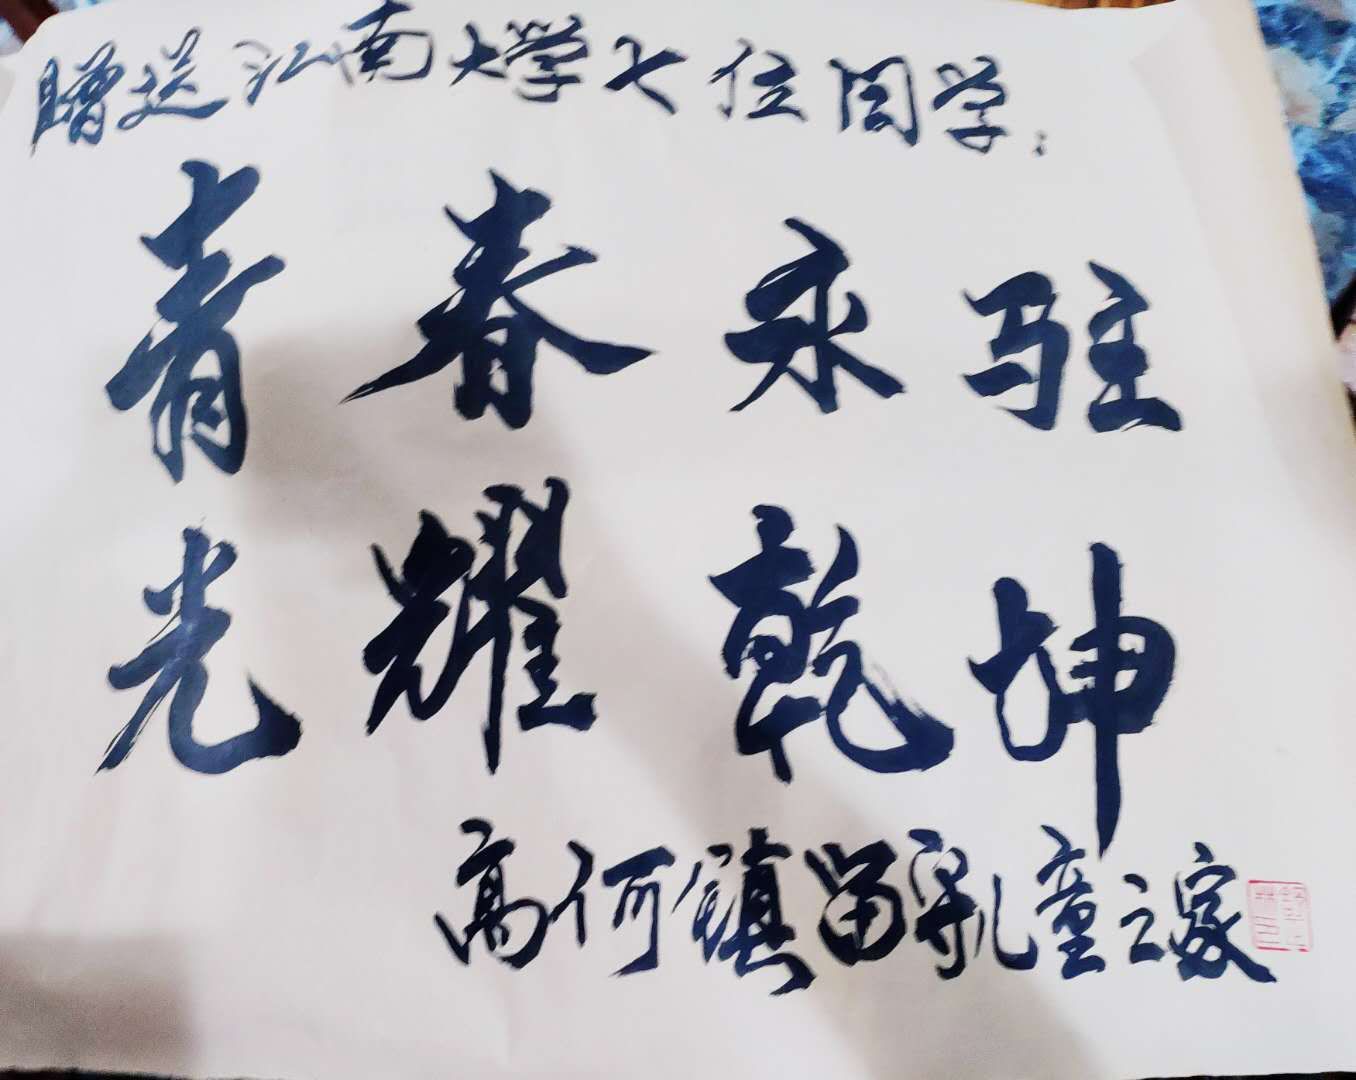 赠送江南大学七位同学：
青春永驻
光耀乾坤
高何镇留守儿童之家